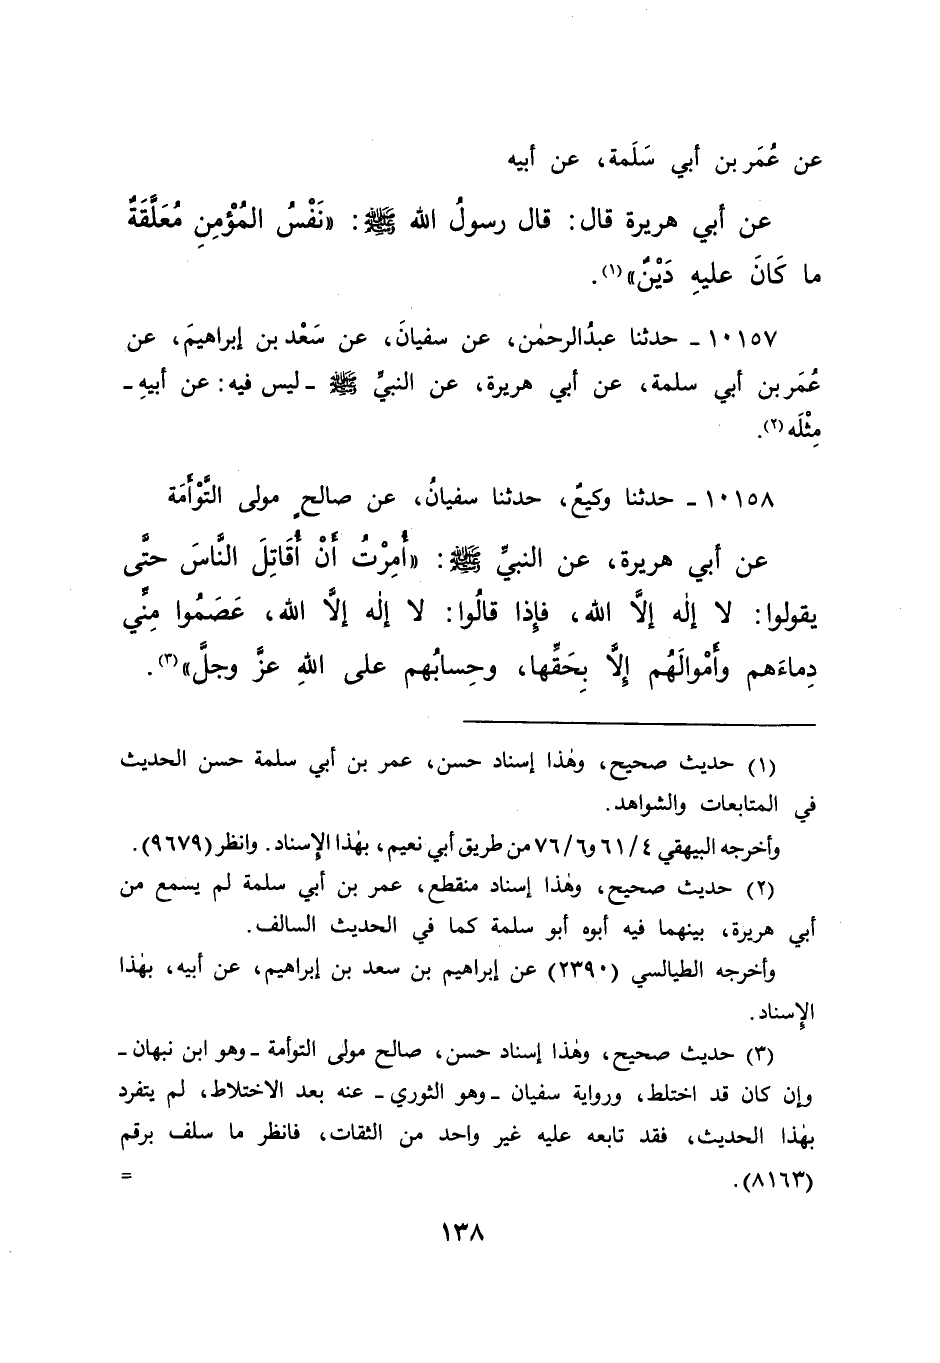 عن عُمَر بن أبي سَلَمة، عن أبيه
عن أبي هريرة قال: قال رسولُ الله ﷺ: «نَفْسُ المُؤْمِنِ مُعَلَّقَةٌ
ما كَانَ عليهِ دَيْنٌ»(١).
١٠١٥٧ ـ حدثنا عبدُالرحمٰن، عن سفيانَ، عن سَعْد بن إبراهيمَ، عن
عُمَر بن أبي سلمة، عن أبي هريرة، عن النبيِّ ﷺ ـ ليس فيه: عن أبيهِ ـ
مِثْلَه(٢).
١٠١٥٨ ـ حدثنا وكيعٌ، حدثنا سفيانُ، عن صالحٍ مولى التَّوْأَمَة
عن أبي هريرة، عن النبيِّ ﷺ: «أُمِرْتُ أَنْ أُقَاتِلَ النَّاسَ حتَّى
يقولوا: لا إلٰه إلَّا الله، فإِذا قالُوا: لا إلٰه إلَّا الله، عَصَمُوا مِنِّي
دِماءَهم وأَمْوالَهُم إِلَّا بِحَقِّها، وحِسابُهم على اللهِ عزَّ وجلَّ»(٣).
(١) حديث صحيح، وهٰذا إسناد حسن، عمر بن أبي سلمة حسن الحديث
في المتابعات والشواهد.
وأخرجه البيهقي ٤/٦١ و٦/٧٦ من طريق أبي نعيم، بهٰذا الإسناد. وانظر (٩٦٧٩).
(٢) حديث صحيح، وهٰذا إسناد منقطع، عمر بن أبي سلمة لم يسمع من
أبي هريرة، بينهما فيه أبوه أبو سلمة كما في الحديث السالف.
وأخرجه الطيالسي (٢٣٩٠) عن إبراهيم بن سعد بن إبراهيم، عن أبيه، بهٰذا
الإسناد.
(٣) حديث صحيح، وهٰذا إسناد حسن، صالح مولى التوأمة ـ وهو ابن نبهان ـ
وإن كان قد اختلط، ورواية سفيان ـ وهو الثوري ـ عنه بعد الاختلاط، لم يتفرد
بهٰذا الحديث، فقد تابعه عليه غير واحد من الثقات، فانظر ما سلف برقم
(٨١٦٣). =
١٣٨